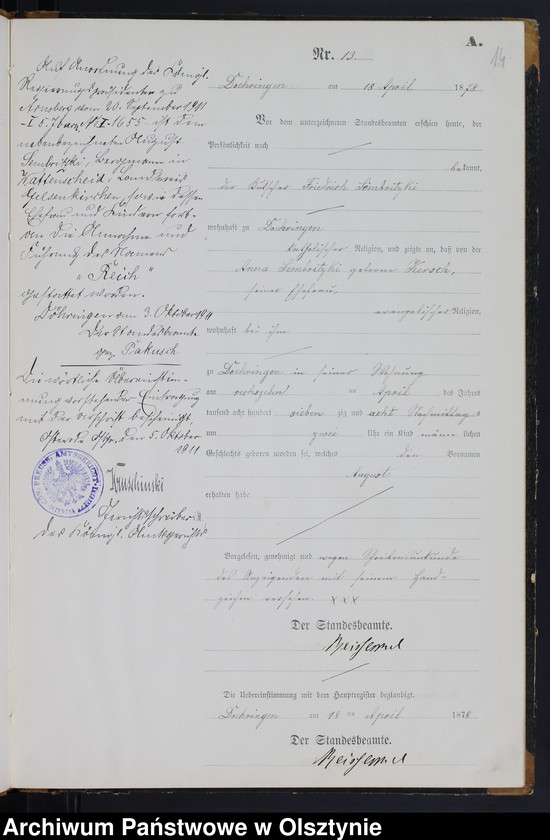 A.
14
Nr. 13.
Doehringen am 18 April 1878
Vor dem unterzeichneten Standesbeamten erschien heute, der
Persönlichkeit nach
bekannt,
der Friedrich Sembritzki
wohnhaft zu Doehringen
katholischer Religion, und zeigte an, daß von der
Anna Sembritzki geborne
seiner Ehefrau,
evangelischer Religion,
wohnhaft bei ihm
zu Doehringen in seiner Wohnung
am ten April des Jahres
tausend acht hundert sieben zig und acht Nachmittags
um zwei Uhr ein Kind männlichen
Geschlechts geboren worden sei, welches den Vornamen
August
erhalten habe.
Vorgelesen, genehmigt und wegen Schreibensunkunde
des Anzeigenden mit seinem Hand-
zeichen versehen. XXX
Der Standesbeamte.
Die Uebereinstimmung mit dem Hauptregister beglaubigt.
Doehringen am 18 ten April 1878
Der Standesbeamte.
Auf Anordnung des Königl.
Regierungspräsidenten zu
Arnsberg vom 20. September 1911
ist dem
nebenbezeichneten August
Sembritzki, Bergmann in
Wattenscheid, Landkreis
Gelsenkirchen, sowie dessen
Ehefrau und Kindern fort-
an die Annahme und
Führung des Namens
"Reich"
gestattet worden.
Döhringen am 3. Oktober 1911
Der Standesbeamte
gez. Pakusch
Die wörtliche Übereinstim-
mung vorstehender Eintragung
mit der Urschrift bescheinigt.
Osterode Ostpr., den 5. Oktober
1911
Gerichtsschreiber
des Königl. Amtsgerichts
Archiwum Państwowe w Olsztynie